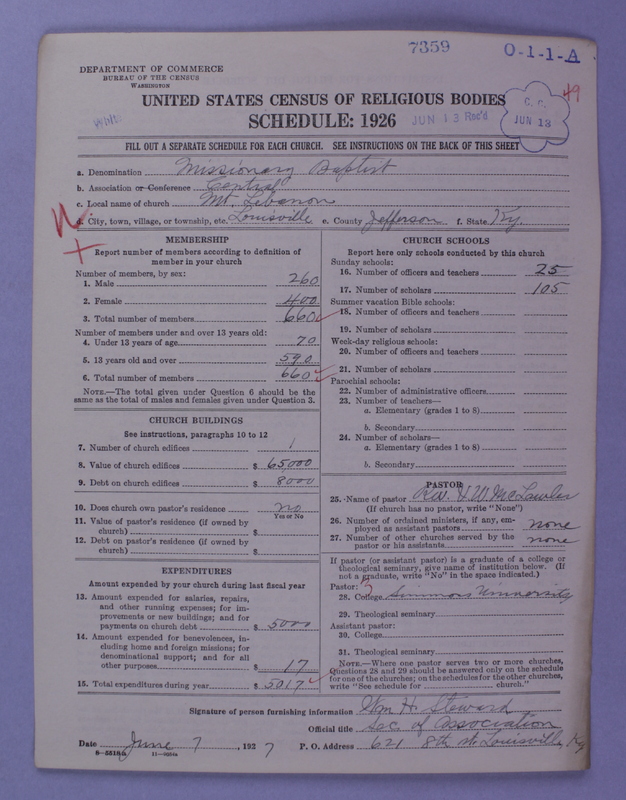 7359
O-1-1-A
DEPARTMENT OF COMMERCE
BUREAU OF THE CENSUS
WASHINGTON
UNITED STATES CENSUS OF RELIGIOUS BODIES
SCHEDULE: 1926
White
JUN 13 Rec'd
C. C.
JUN 13
49
FILL OUT A SEPARATE SCHEDULE FOR EACH CHURCH. SEE INSTRUCTIONS ON THE BACK OF THIS SHEET
a. Denomination Missionary Baptist
b. Association or Conference Central
c. Local name of church Mt. Lebanon
d. City, town, village, or township, etc. Louisville e. County Jefferson f. State Ky.
MEMBERSHIP
Report number of members according to definition of
member in your church
Number of members, by sex:
1. Male 260
2. Female 400
3. Total number of members 660
Number of members under and over 13 years old:
4. Under 13 years of age 70
5. 13 years old and over 590
6. Total number of members 660
NOTE.—The total given under Question 6 should be the
same as the total of males and females given under Question 3.
CHURCH BUILDINGS
See instructions, paragraphs 10 to 12
7. Number of church edifices 1
8. Value of church edifices $ 65,000
9. Debt on church edifices $ 8000
10. Does church own pastor's residence no
Yes or No
11. Value of pastor's residence (if owned by
church) $
12. Debt on pastor's residence (if owned by
church) $
EXPENDITURES
Amount expended by your church during last fiscal year
13. Amount expended for salaries, repairs,
and other running expenses; for im-
provements or new buildings; and for
payments on church debt $ 5000
14. Amount expended for benevolences, in-
cluding home and foreign missions; for
denominational support; and for all
other purposes $ 17
15. Total expenditures during year $ 5017
CHURCH SCHOOLS
Report here only schools conducted by this church
Sunday schools:
16. Number of officers and teachers 25
17. Number of scholars 105
Summer vacation Bible schools:
18. Number of officers and teachers
19. Number of scholars
Week-day religious schools:
20. Number of officers and teachers
21. Number of scholars
Parochial schools:
22. Number of administrative officers
23. Number of teachers—
a. Elementary (grades 1 to 8)
b. Secondary
24. Number of scholars—
a. Elementary (grades 1 to 8)
b. Secondary
PASTOR
25. Name of pastor Rev. V.W. McLawler
(If church has no pastor, write "None")
26. Number of ordained ministers, if any, em-
ployed as assistant pastors none
27. Number of other churches served by the
pastor or his assistants none
If pastor (or assistant pastor) is a graduate of a college or
theological seminary, give name of institution below. (If
not a graduate, write "No" in the space indicated.)
Pastor: 3
28. College Simmons University
29. Theological seminary
Assistant pastor:
30. College
31. Theological seminary
NOTE.—Where one pastor serves two or more churches,
Questions 28 and 29 should be answered only on the schedule
for one of the churches; on the schedules for the other churches,
write "See schedule for church."
Signature of person furnishing information Wm H. Steward
Official title Sec. of Association
Date June 7, 1927 P. O. Address 621 8th st Louisville, Ky
8—5518a 11—9954a